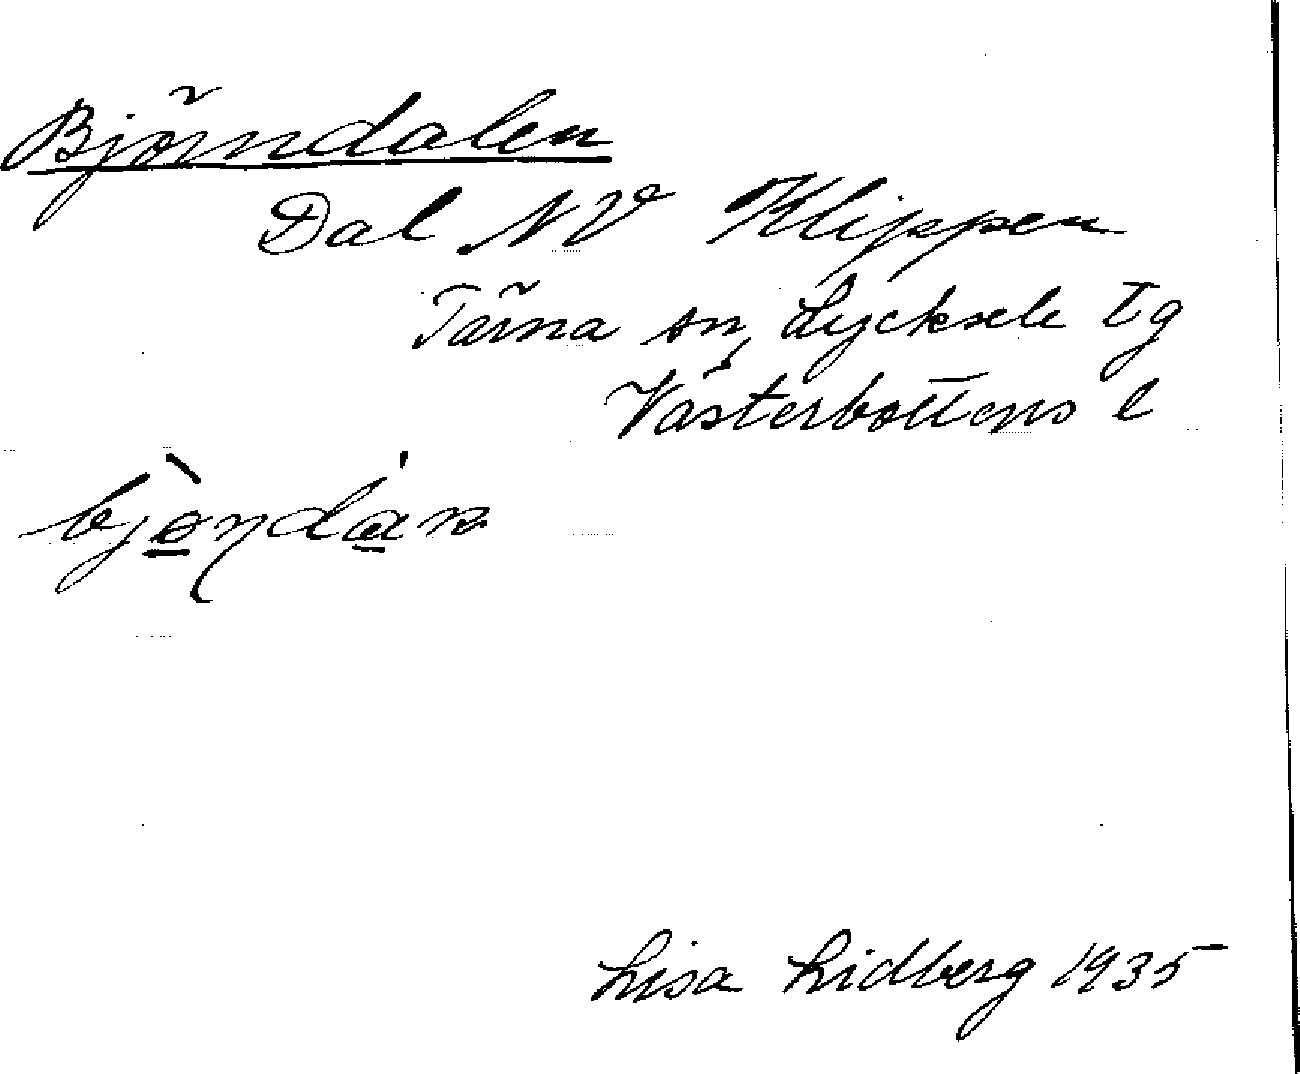 Björndalen
Dal NV Klippen
Tärna sn, Lycksele tg
Västerbottens l
Lisa Lidberg 1935